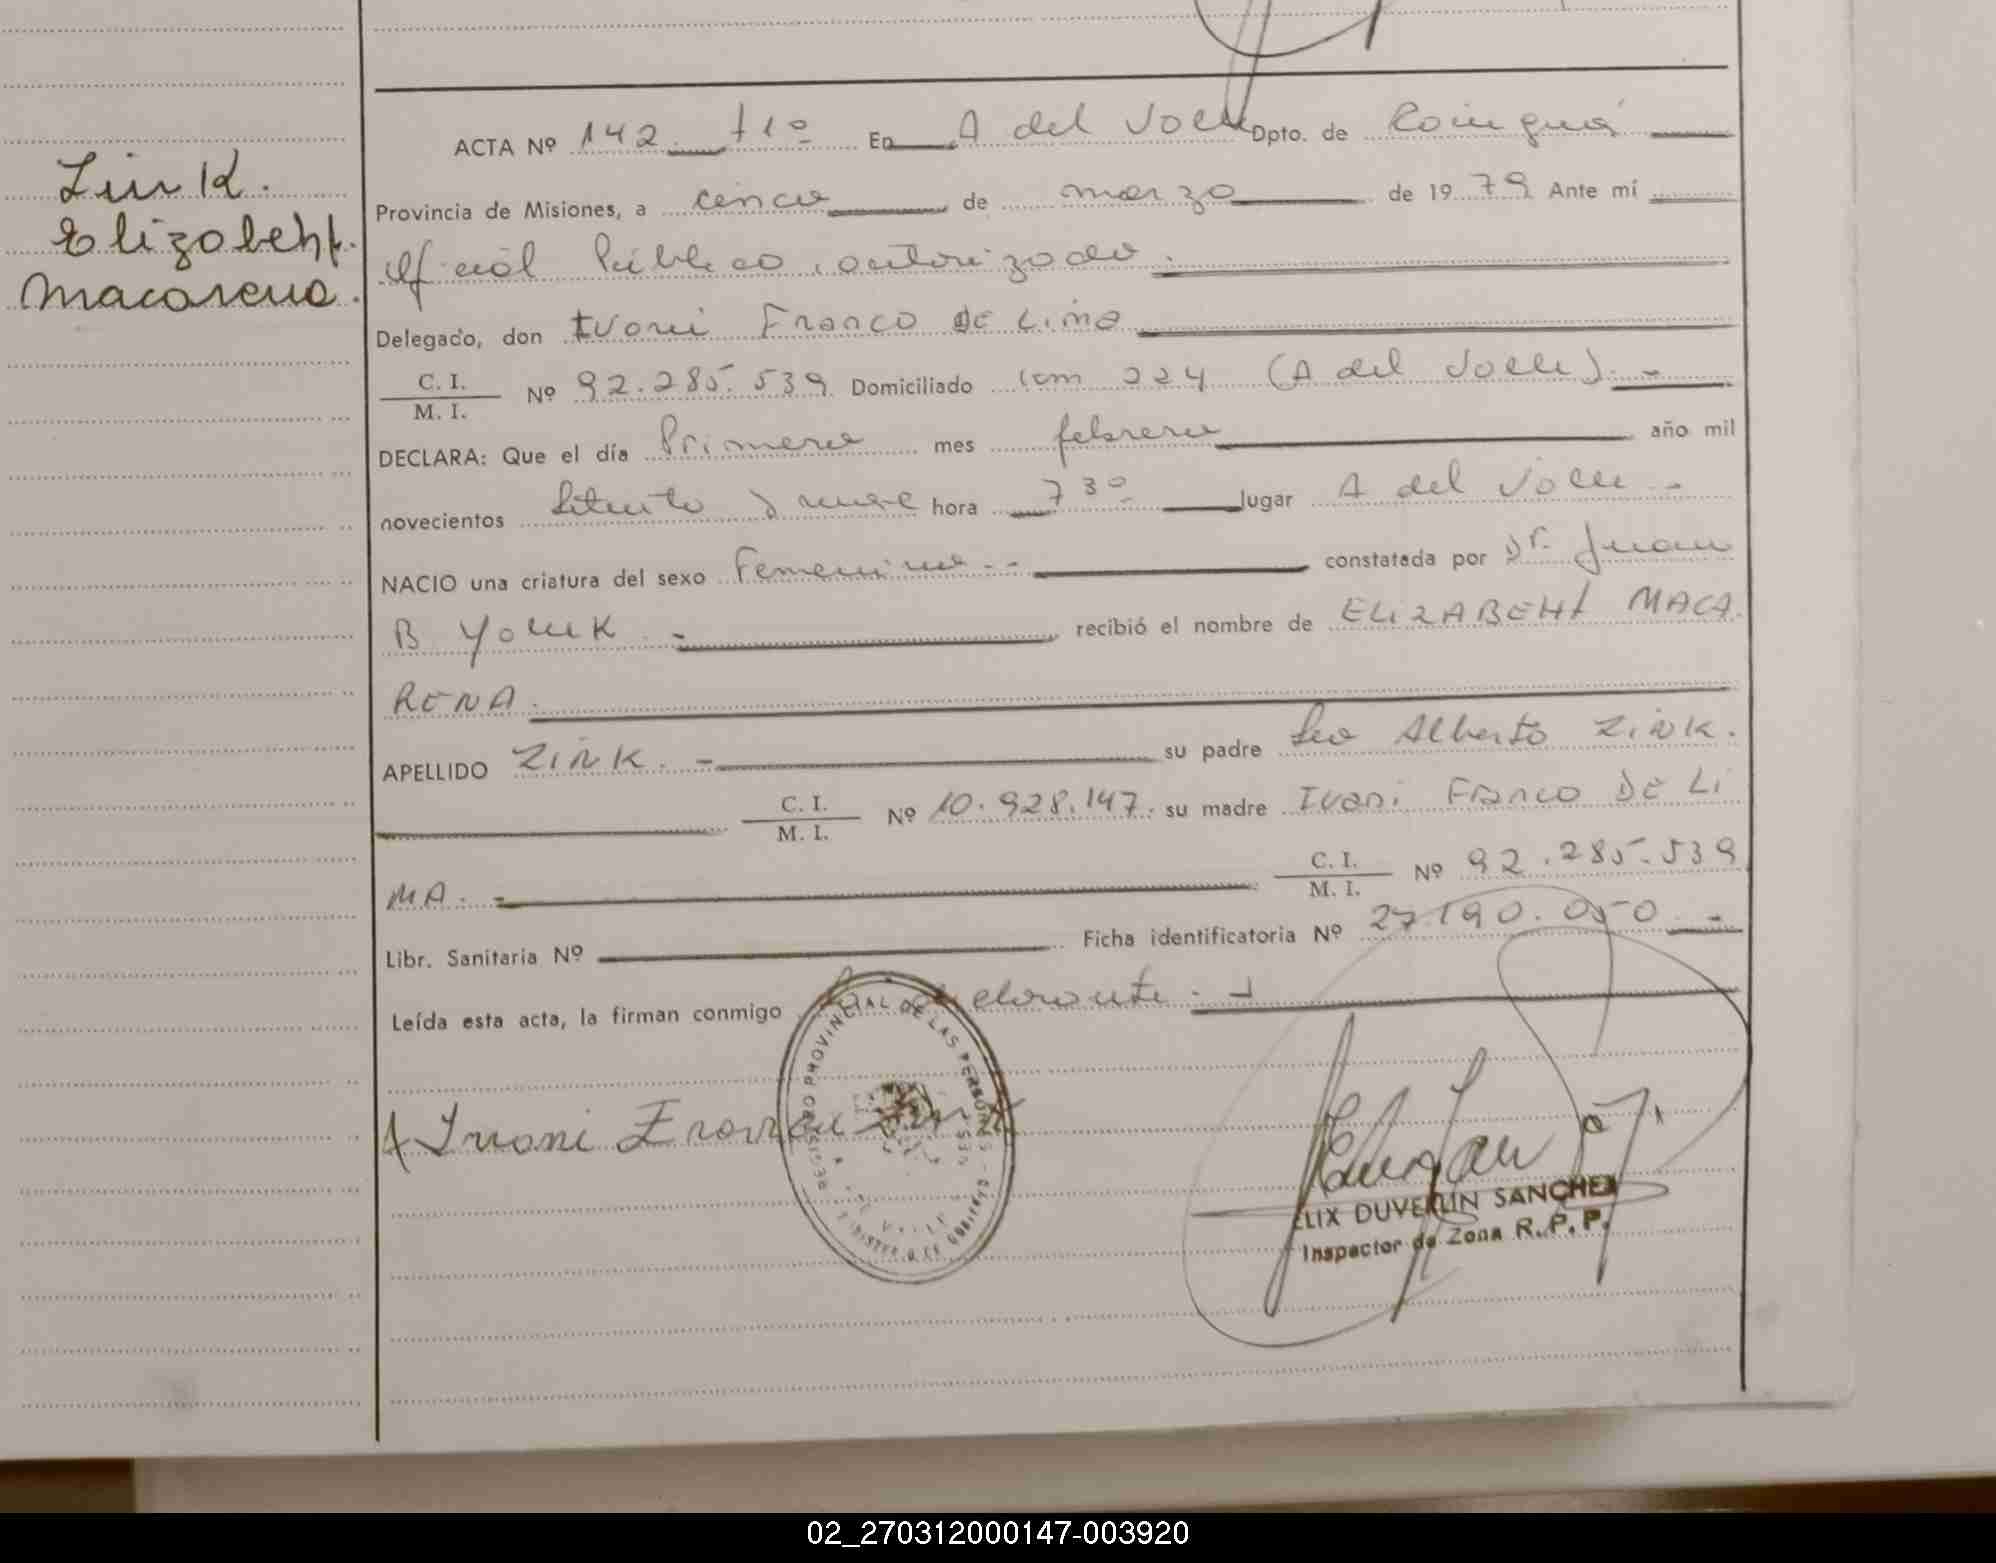 Zink.
Elizabeht.
Macarena.
ACTA Nº 142 t1º En A del Valle Dpto. de Cainguá
Provincia de Misiones, a cinco de marzo de 1979 Ante mí
Oficial Público autorizado.
Delegado, don Ivani Franco DE Lima
C. I. / M. I. Nº 92.285.539 Domiciliado km 224 (A del Valle). -
DECLARA: Que el día Primero mes febrero año mil
novecientos setenta y nueve hora 7 30 lugar A del Valle -
NACIO una criatura del sexo Femenino. - constatada por Dr. Juan
B recibió el nombre de ELIZABEHt MACA
RENA.
APELLIDO ZINK. - su padre Leo Alberto ZINK.
C. I. / M. I. Nº 10.928.147. su madre Ivani Franco DE LI
MA. - C. I. / M. I. Nº 92.285.539
Libr. Sanitaria Nº Ficha identificatoria Nº 27.190.050. -
Leída esta acta, la firman conmigo la declarante. -
REGISTRO PROVINCIAL DE LAS PERSONAS
MINISTERIO DE GOBIERNO
Ivani Franco
FELIX DUVERLIN SANCHEZ
Inspector de Zona R. P. P.
02_270312000147-003920